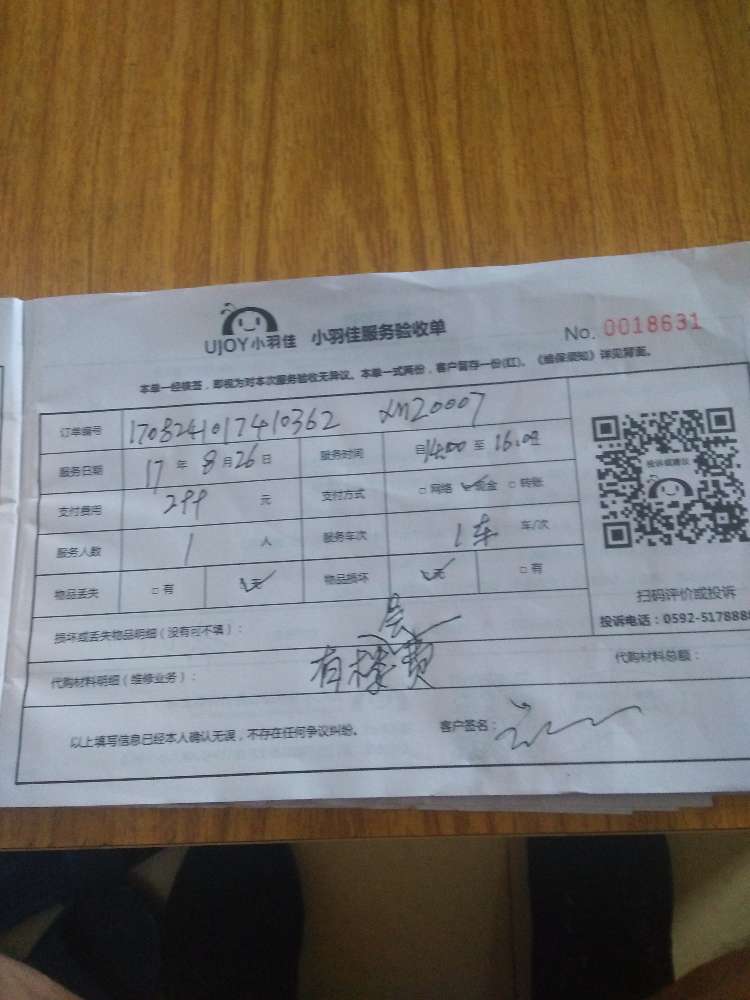 UJOY小羽佳 小羽佳服务验收单 No. 0018631
本单一经核签，即视为对本次服务验收无异议。本单一式两份，客户留存一份(红)。《维保须知》详见背面。
订单编号 1708241017410362 XM20007
服务日期 17 年 8 月 26 日 服务时间 自 14:00 至 16:00
支付费用 299 元 支付方式 □ 网络 现金 □ 转账
服务人数 1 人 服务车次 1车 车/次
物品丢失 □ 有 无 物品损坏 无 □ 有
投诉或建议
扫码评价或投诉
投诉电话：0592-5178888
损坏或丢失物品明细（没有可不填）：
代购材料明细（维修业务）： 有楼费 代购材料总额：
以上填写信息已经本人确认无误，不存在任何争议纠纷。 客户签名：